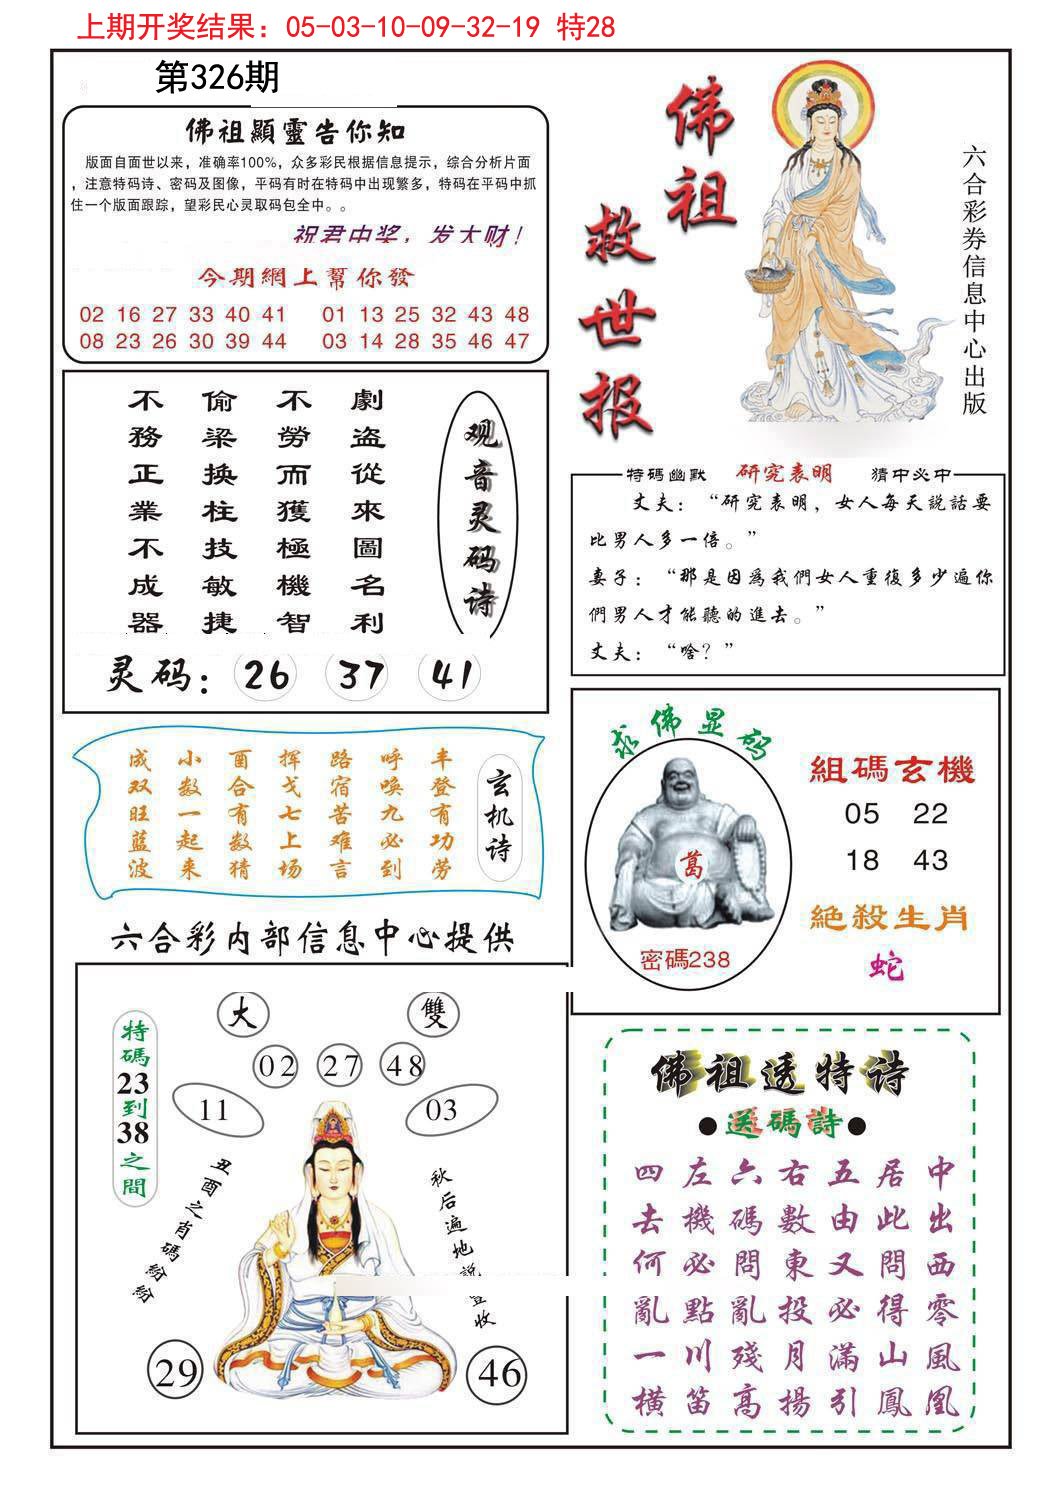 上期开奖结果：05-03-10-09-32-19 特28
第326期
佛祖顯靈告你知
版面自面世以来，准确率100%，众多彩民根据信息提示，综合分析片面
，注意特码诗、密码及图像，平码有时在特码中出现繁多，特码在平码中抓
住一个版面跟踪，望彩民心灵取码包全中。。
祝君中奖，发大财！
今期網上幫你發
02 16 27 33 40 41 01 13 25 32 43 48
08 23 26 30 39 44 03 14 28 35 46 47
佛祖
救世报
六合彩券信息中心出版
观音灵码诗
劇盗從來圖名利
不勞而獲極機智
偷梁换柱技敏捷
不務正業不成器
灵码：26 37 41
特碼幽默 研究表明 猜中必中
丈夫：“研究表明，女人每天説話要
比男人多一倍。”
妻子：“那是因爲我們女人重復多少遍你
們男人才能聽的進去。”
丈夫：“啥？”
玄机诗
丰登有功劳
呼唤九必到
路宿苦难言
挥戈七上场
酉合有数猜
小数一起来
成双旺蓝波
求佛显码
葛
密碼238
組碼玄機
05 22
18 43
絕殺生肖
蛇
六合彩内部信息中心提供
特碼23到38之間
大 雙
02 27 48
11 03
丑酉之肖碼紛紛
秋后遍地説豐收
29 46
佛祖透特诗
●送碼詩●
中出西零風凰
居此問得山鳳
五由又必滿引
右數東投月揚
六碼問亂殘高
左機必點川笛
四去何亂一横